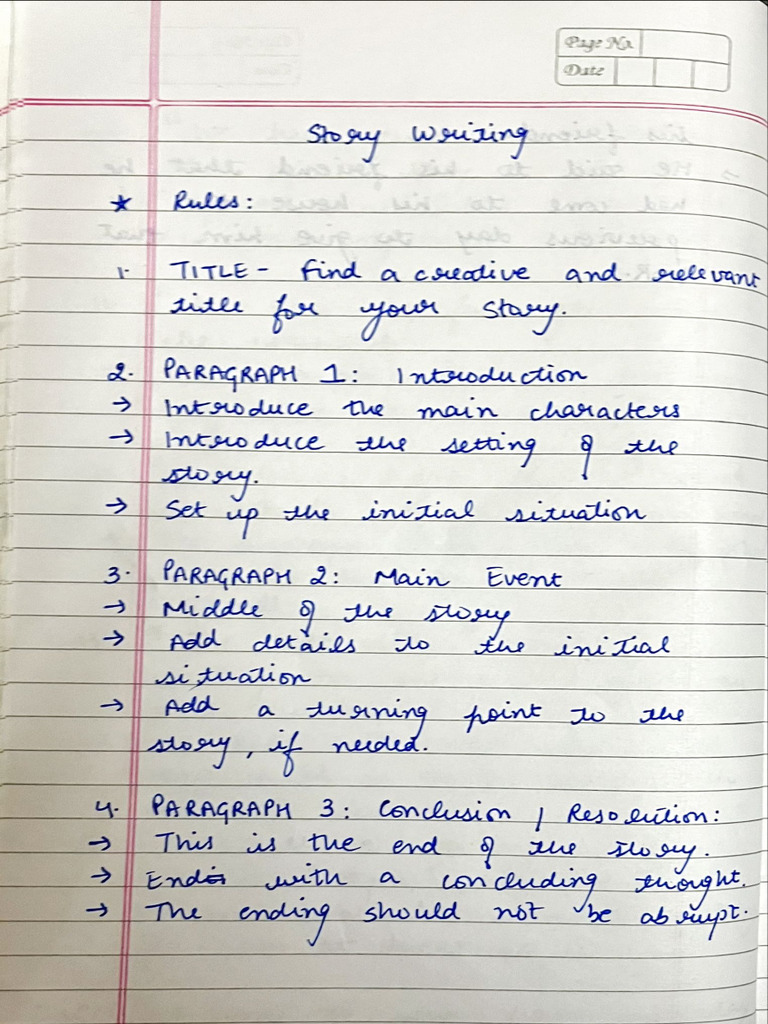 Page No.
Date
Story Writing
★ Rules:
1. TITLE - Find a creative and relevant
title for your story.
2. PARAGRAPH 1: Introduction
→ Introduce the main characters
→ Introduce the setting of the
story.
→ Set up the initial situation
3. PARAGRAPH 2: Main Event
→ Middle of the story
→ Add details to the initial
situation
→ Add a turning point to the
story, if needed.
4. PARAGRAPH 3: Conclusion / Resolution:
→ This is the end of the story.
→ End with a concluding thought.
→ The ending should not be abrupt.